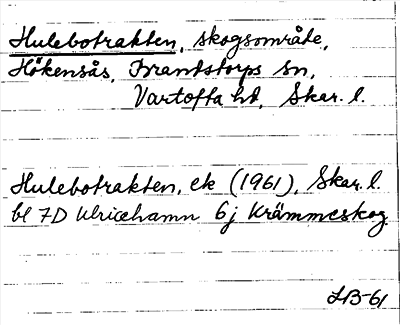 Hulebotrakten, skogsområde,
Hökensås, Brandstorps sn,
Vartofta hd, Skar. l.
Hulebotrakten, ek (1961), Skar. l.
bl 7D Ulricehamn 6j Krämmeskog
LB-61